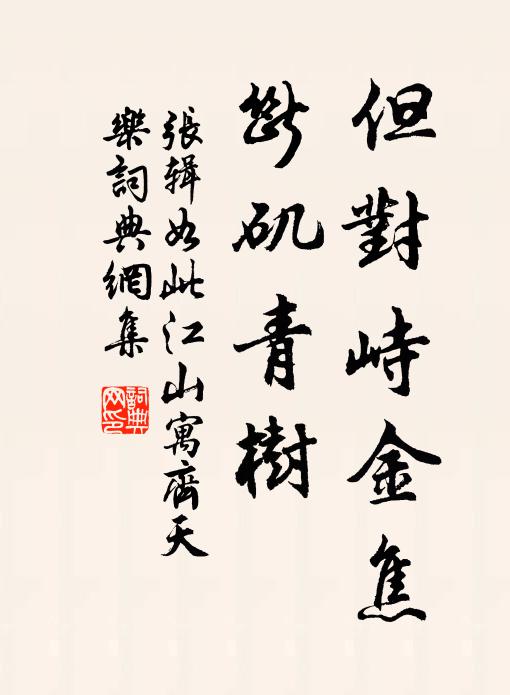 但對峙金焦
斷矶青樹
張辑如此江山寓齊天
樂詞典網集
詞典
网印